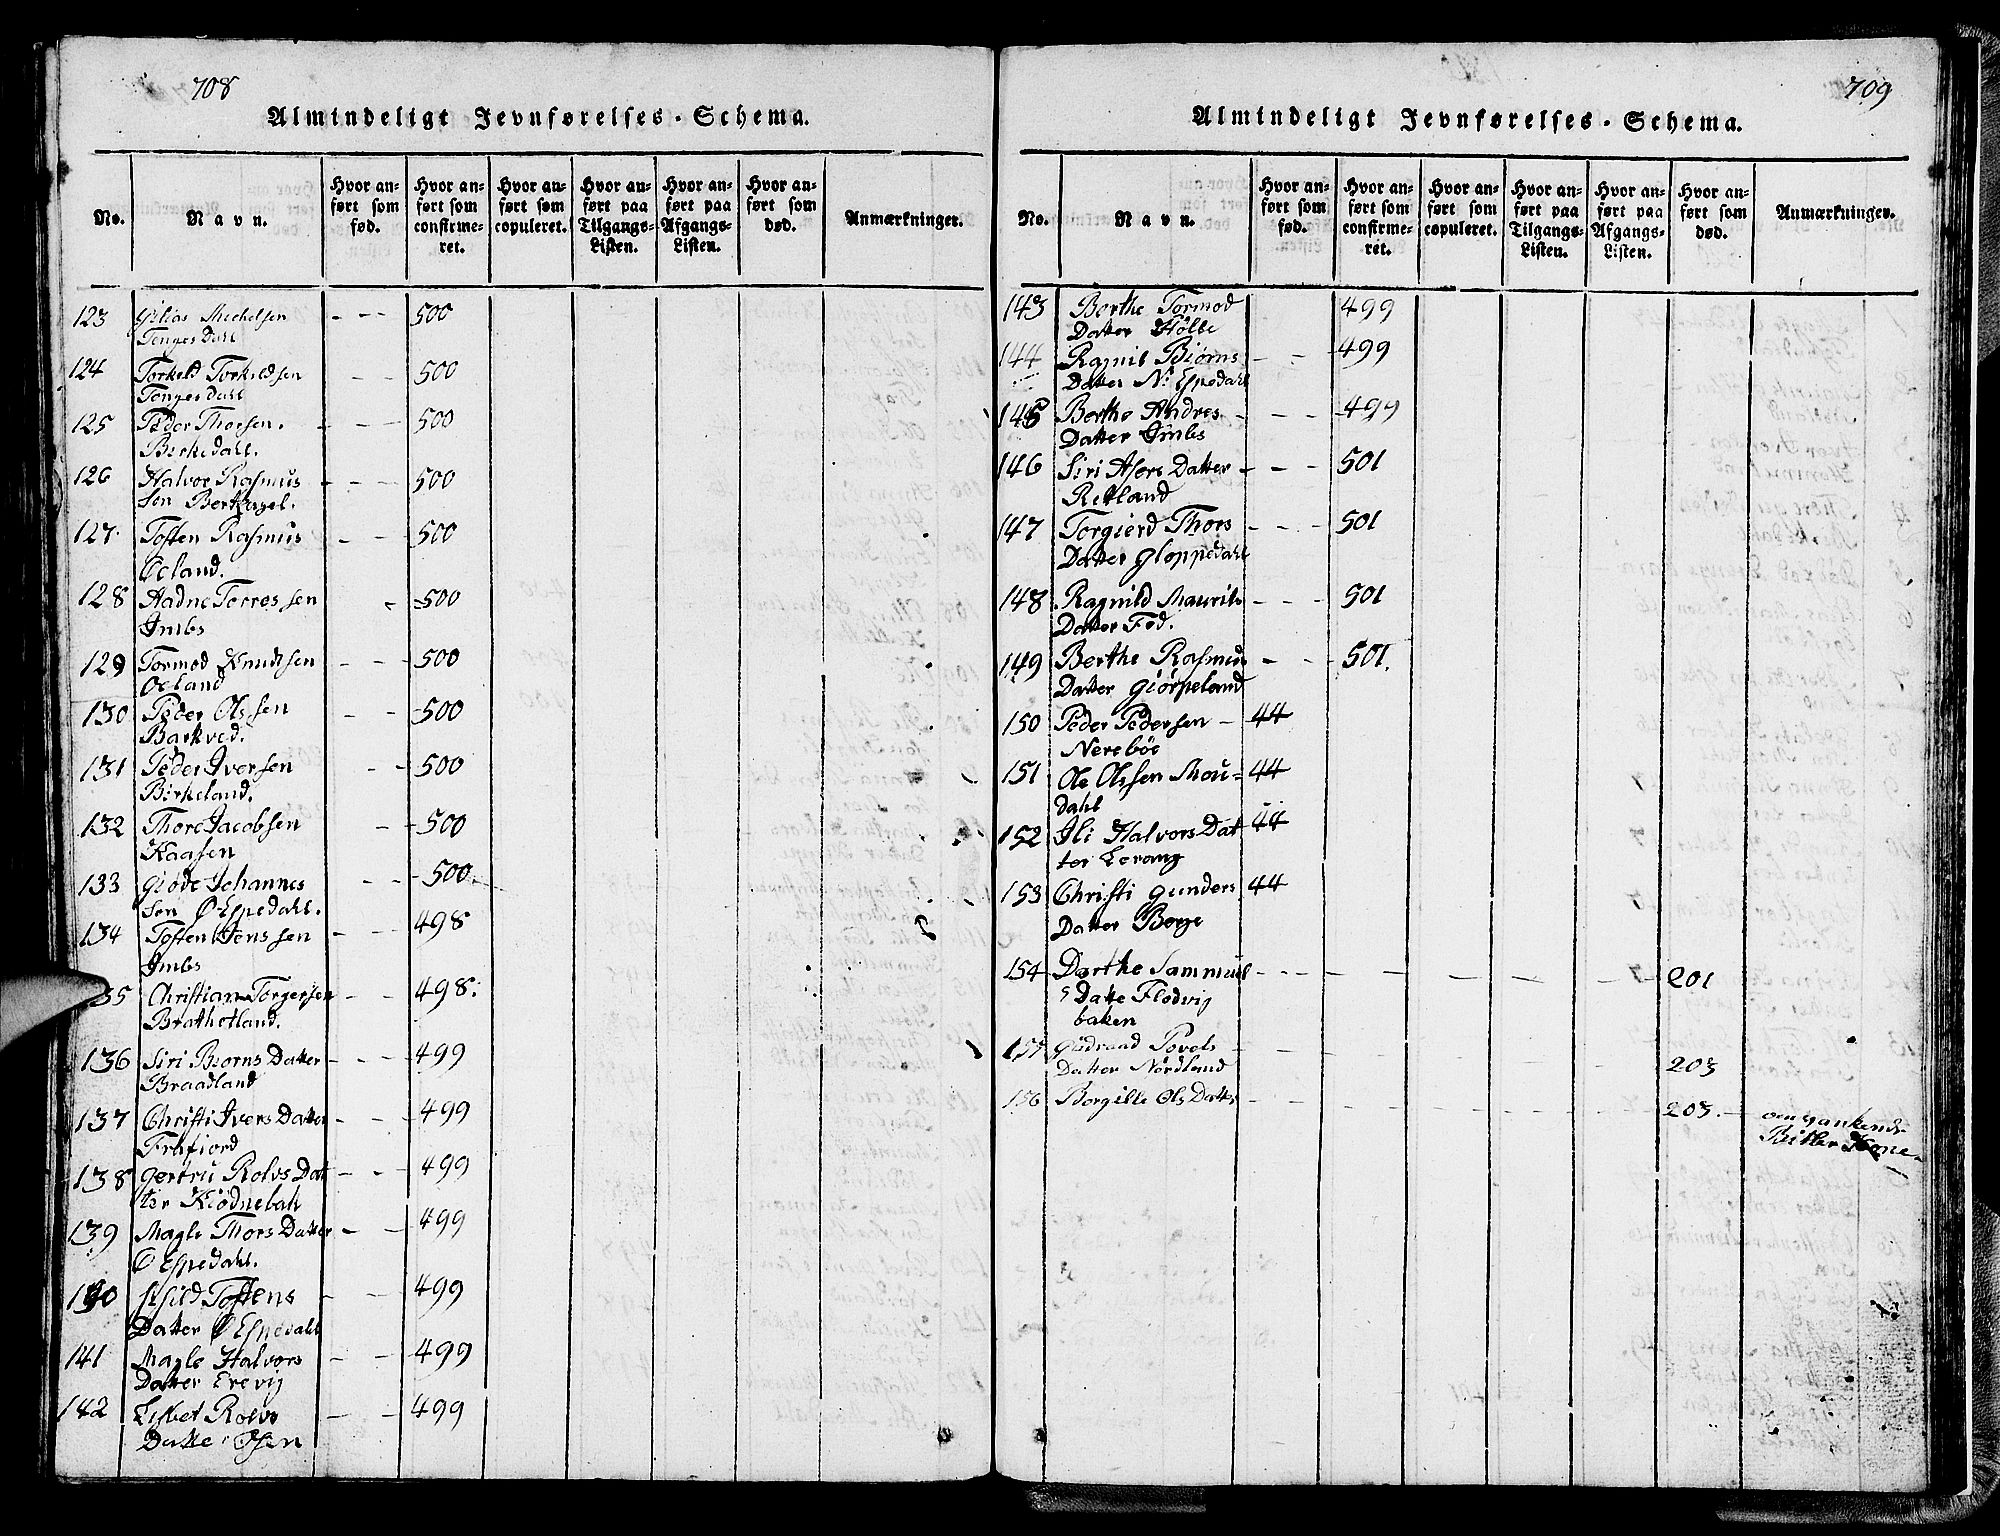 708
Almindeligt Jevnførelses-Schema.
No.
Navn.
Hvor an-
ført som
fød.
Hvor an-
ført som
confirme-
ret.
Hvor an-
ført som
copuleret.
Hvor an-
ført paa
Tilgangs-
Listen.
Hvor an-
ført paa
Afgangs-
Listen.
Hvor an-
ført som
død.
Anmærkninger.
123 Gilias Michelsen - - - 500
Tengesdahl
124 Torkeld Torkildsen - - 500
Tengesdahl
125 Peder Thorsen. - - - 500
Birkedahl.
126 Halvor Rasmus - - - 500
sen
127. Tosten Rasmus - - 500
Ocland.
128 Aadne Torressen - - 500
Imbs
129 Tormod Knudsen - - 500
Ocland
130 Peder Olssen - - 500
Barkved.
131 Peder Iversen - - 500
Birkeland.
132 Thore Jacobsen - - 500
Kaasen
133 Giøde Johannes - - - 500
sen Ø Espedahl.
134 Tosten Jenssen - - 498
Imbs
135 Christian Torgersen - - 498.
Brathetland.
136 Siri Biorns Datter - - - 499
Braadland
137 Christi Ivers Datter - - 499
Frafiord
138 Gertru Rolvs Dat - - 499
ter
139 Magle Thors Datter - - 499
Ø Espedahl.
140 Tostens - - 499
Datter Ø Espedahl
141 Magle Halvors - - 499
Datter Erevig
142 Lisbet Rolvs - - 499
Datter
709
Almindeligt Jevnførelses-Schema.
No.
Navn.
Hvor an-
ført som
fød.
Hvor an-
ført som
confirme-
ret.
Hvor an-
ført som
copuleret.
Hvor an-
ført paa
Tilgangs-
Listen.
Hvor an-
ført paa
Afgangs-
Listen.
Hvor an-
ført som
død.
Anmærkninger.
143 Berthe Tormod - - 499
Datter Hølle
144 Ragnil Biørns - - 499
Datter N: Espedahl
145 Berthe Andres - - - 499
Datter Imbs
146 Siri Asers Datter - - - 501
Retland
147 Torgierd Thors - - - 501
Datter Gloppedahl
148 Ragnild Maurits - - - 501
Datter Fød.
149 Berthe Rasmus - - - 501.
Datter Giørpeland
150 Peder Pedersen - 44
Nerebøe
151 Ole Olssen Mou- 44
dahl
152 Ili Halvors Dat 44
ter Lerang
153 Christi Gunders 44
Datter Berge
154 Darthe Sammuel - - - - - - 201
s Datte Flodvig
baken
155 Povels - - - 203
Datter Nordland
156 Borgille Ols Datter - - - - - - 203. - omgankende
Betler Kone.